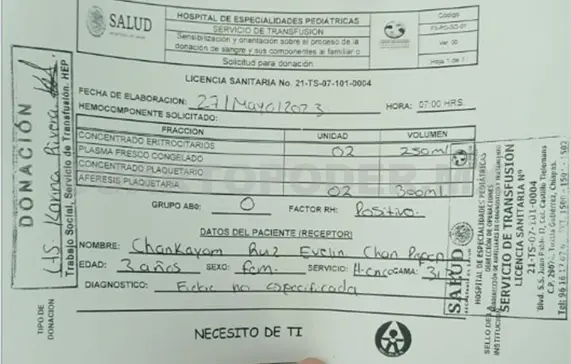 SALUD
HOSPITAL DE ESPECIALIDADES PEDIÁTRICAS
SERVICIO DE TRANSFUSION
Sensibilización y orientación sobre el proceso de la
donación de sangre y sus componentes al familiar o
Solicitud para donación
Código
Hoja 1 de 1
LICENCIA SANITARIA No. 21-TS-07-101-0004
FECHA DE ELABORACION: 27/Mayo/2023 HORA: 07:00 HRS.
HEMOCOMPONENTE SOLICITADO:
FRACCION UNIDAD VOLUMEN
CONCENTRADO ERITROCITARIOS 02 250ml
PLASMA FRESCO CONGELADO
CONCENTRADO PLAQUETARIO
AFERESIS PLAQUETARIA 02 300ml
GRUPO AB0: O FACTOR RH: Positivo
DATOS DEL PACIENTE (RECEPTOR)
NOMBRE: Chankayam Ruiz Evelin Chan
EDAD: 3 años SEXO: fem. SERVICIO: CAMA:
DIAGNOSTICO: no especificada
TIPO DE
DONACION
NECESITO DE TI
DONACIÓN
LTS Karina Rivera
Trabajo Social, Servicio de Transfusión. HEP
SALUD
HOSPITAL DE ESPECIALIDADES PEDIÁTRICAS
DIRECCIÓN DE OPERACIONES
SERVICIO DE TRANSFUSIÓN
LICENCIA SANITARIA Nº
21-TS-07-101-0004
Blvd. S.S. Juan Pablo II, Col. Castillo Tielemans
C.P. 29070, Tuxtla Gutiérrez, Chiapas.